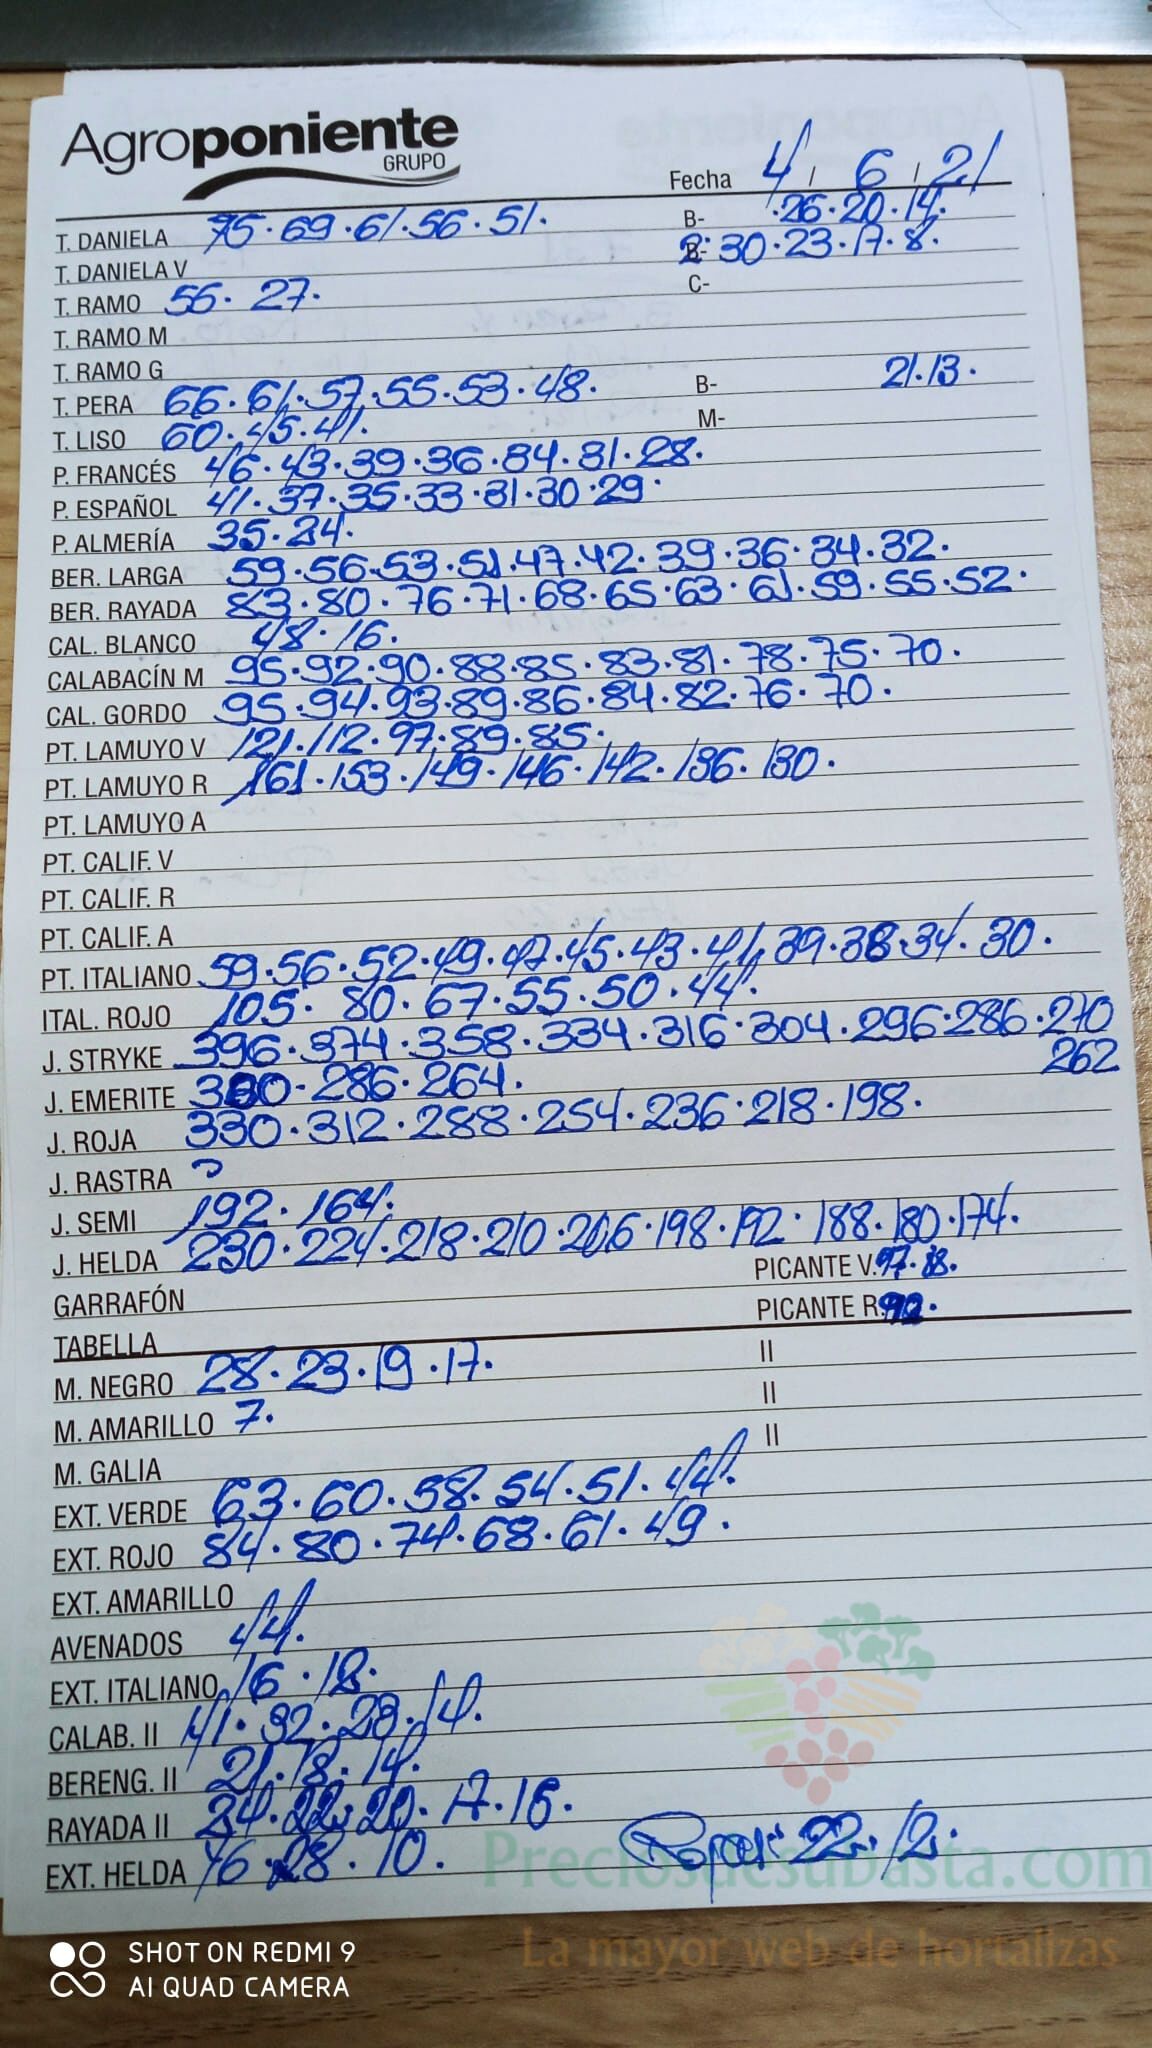 Agroponiente
GRUPO
Fecha 4 / 6 / 21
T. DANIELA 75·69·61·56·51· B- ·26·20·14·
T. DANIELA V 2ª 30·23·17·8·
T. RAMO 56· 27· C-
T. RAMO M
T. RAMO G
T. PERA 66·61·57·55·53·48· B- 21·13·
T. LISO 60·45·41· M-
P. FRANCÉS 46·43·39·36·34·31·28·
P. ESPAÑOL 41·37·35·33·31·30·29·
P. ALMERÍA 35·24·
BER. LARGA 59·56·53·51·47·42·39·36·34·32·
BER. RAYADA 83·80·76·71·68·65·63·61·59·55·52·
CAL. BLANCO 48·16·
CALABACÍN M 95·92·90·88·85·83·81·78·75·70·
CAL. GORDO 95·94·93·89·86·84·82·76·70·
PT. LAMUYO V 121·112·97·89·85·
PT. LAMUYO R 161·153·149·146·142·136·130·
PT. LAMUYO A
PT. CALIF. V
PT. CALIF. R
PT. CALIF. A
PT. ITALIANO 59·56·52·49·47·45·43·41·39·38·34·30·
ITAL. ROJO 105·80·67·55·50·44·
J. STRYKE 396·374·358·334·316·304·296·286·270
262
J. EMERITE 286·264·
J. ROJA 330·312·288·254·236·218·198·
J. RASTRA
J. SEMI 192·164·
J. HELDA 230·224·218·210·206·198·192·188·180·174·
GARRAFÓN PICANTE V.
TABELLA PICANTE R.
M. NEGRO 28·23·19·17· II
M. AMARILLO 7· II
M. GALIA II
EXT. VERDE 63·60·58·54·51·44·
EXT. ROJO 84·80·74·68·61·49·
EXT. AMARILLO
AVENADOS 44·
EXT. ITALIANO 16·12·
CALAB. II 41·32·23·14·
BERENG. II 21·18·14·
RAYADA II 24·22·20·17·15·
EXT. HELDA 76·28·10· 22·12·
Preciosdesubasta.com
La mayor web de hortalizas
SHOT ON REDMI 9
AI QUAD CAMERA